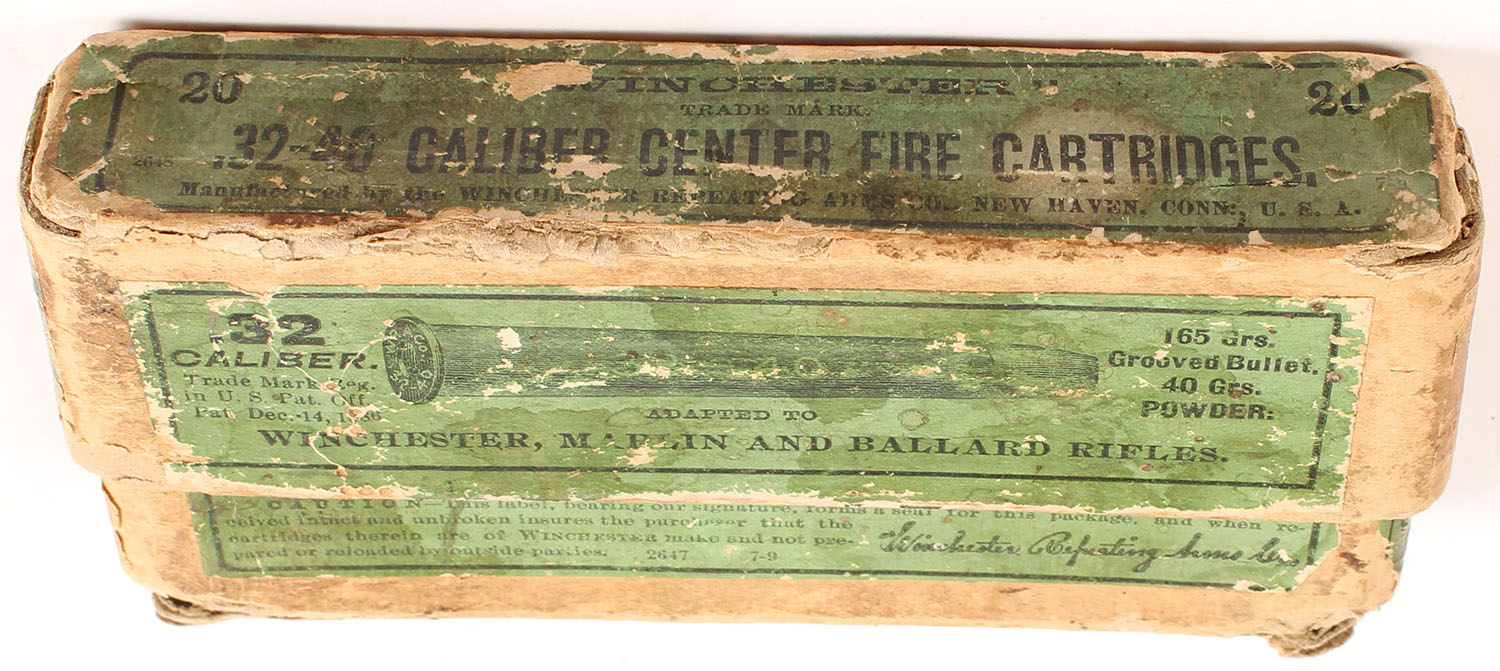 20 "WINCHESTER" 20
TRADE MARK.
.32-40 CALIBER CENTER FIRE CARTRIDGES.
2645
Manufactured by the WINCHESTER REPEATING ARMS CO., NEW HAVEN, CONN., U. S. A.
.32
CALIBER.
Trade Mark Reg.
in U. S. Pat. Off.
Pat. Dec. 14, 1886
165 Grs.
Grooved Bullet.
40 Grs.
POWDER:
ADAPTED TO
WINCHESTER, MARLIN AND BALLARD RIFLES.
CAUTION—This label, bearing our signature, forms a seal for this package, and when re-
ceived intact and unbroken insures the purchaser that the
cartridges therein are of WINCHESTER make and not pre-
pared or reloaded by outside parties. 2647 7-9
Winchester Repeating Arms Co.